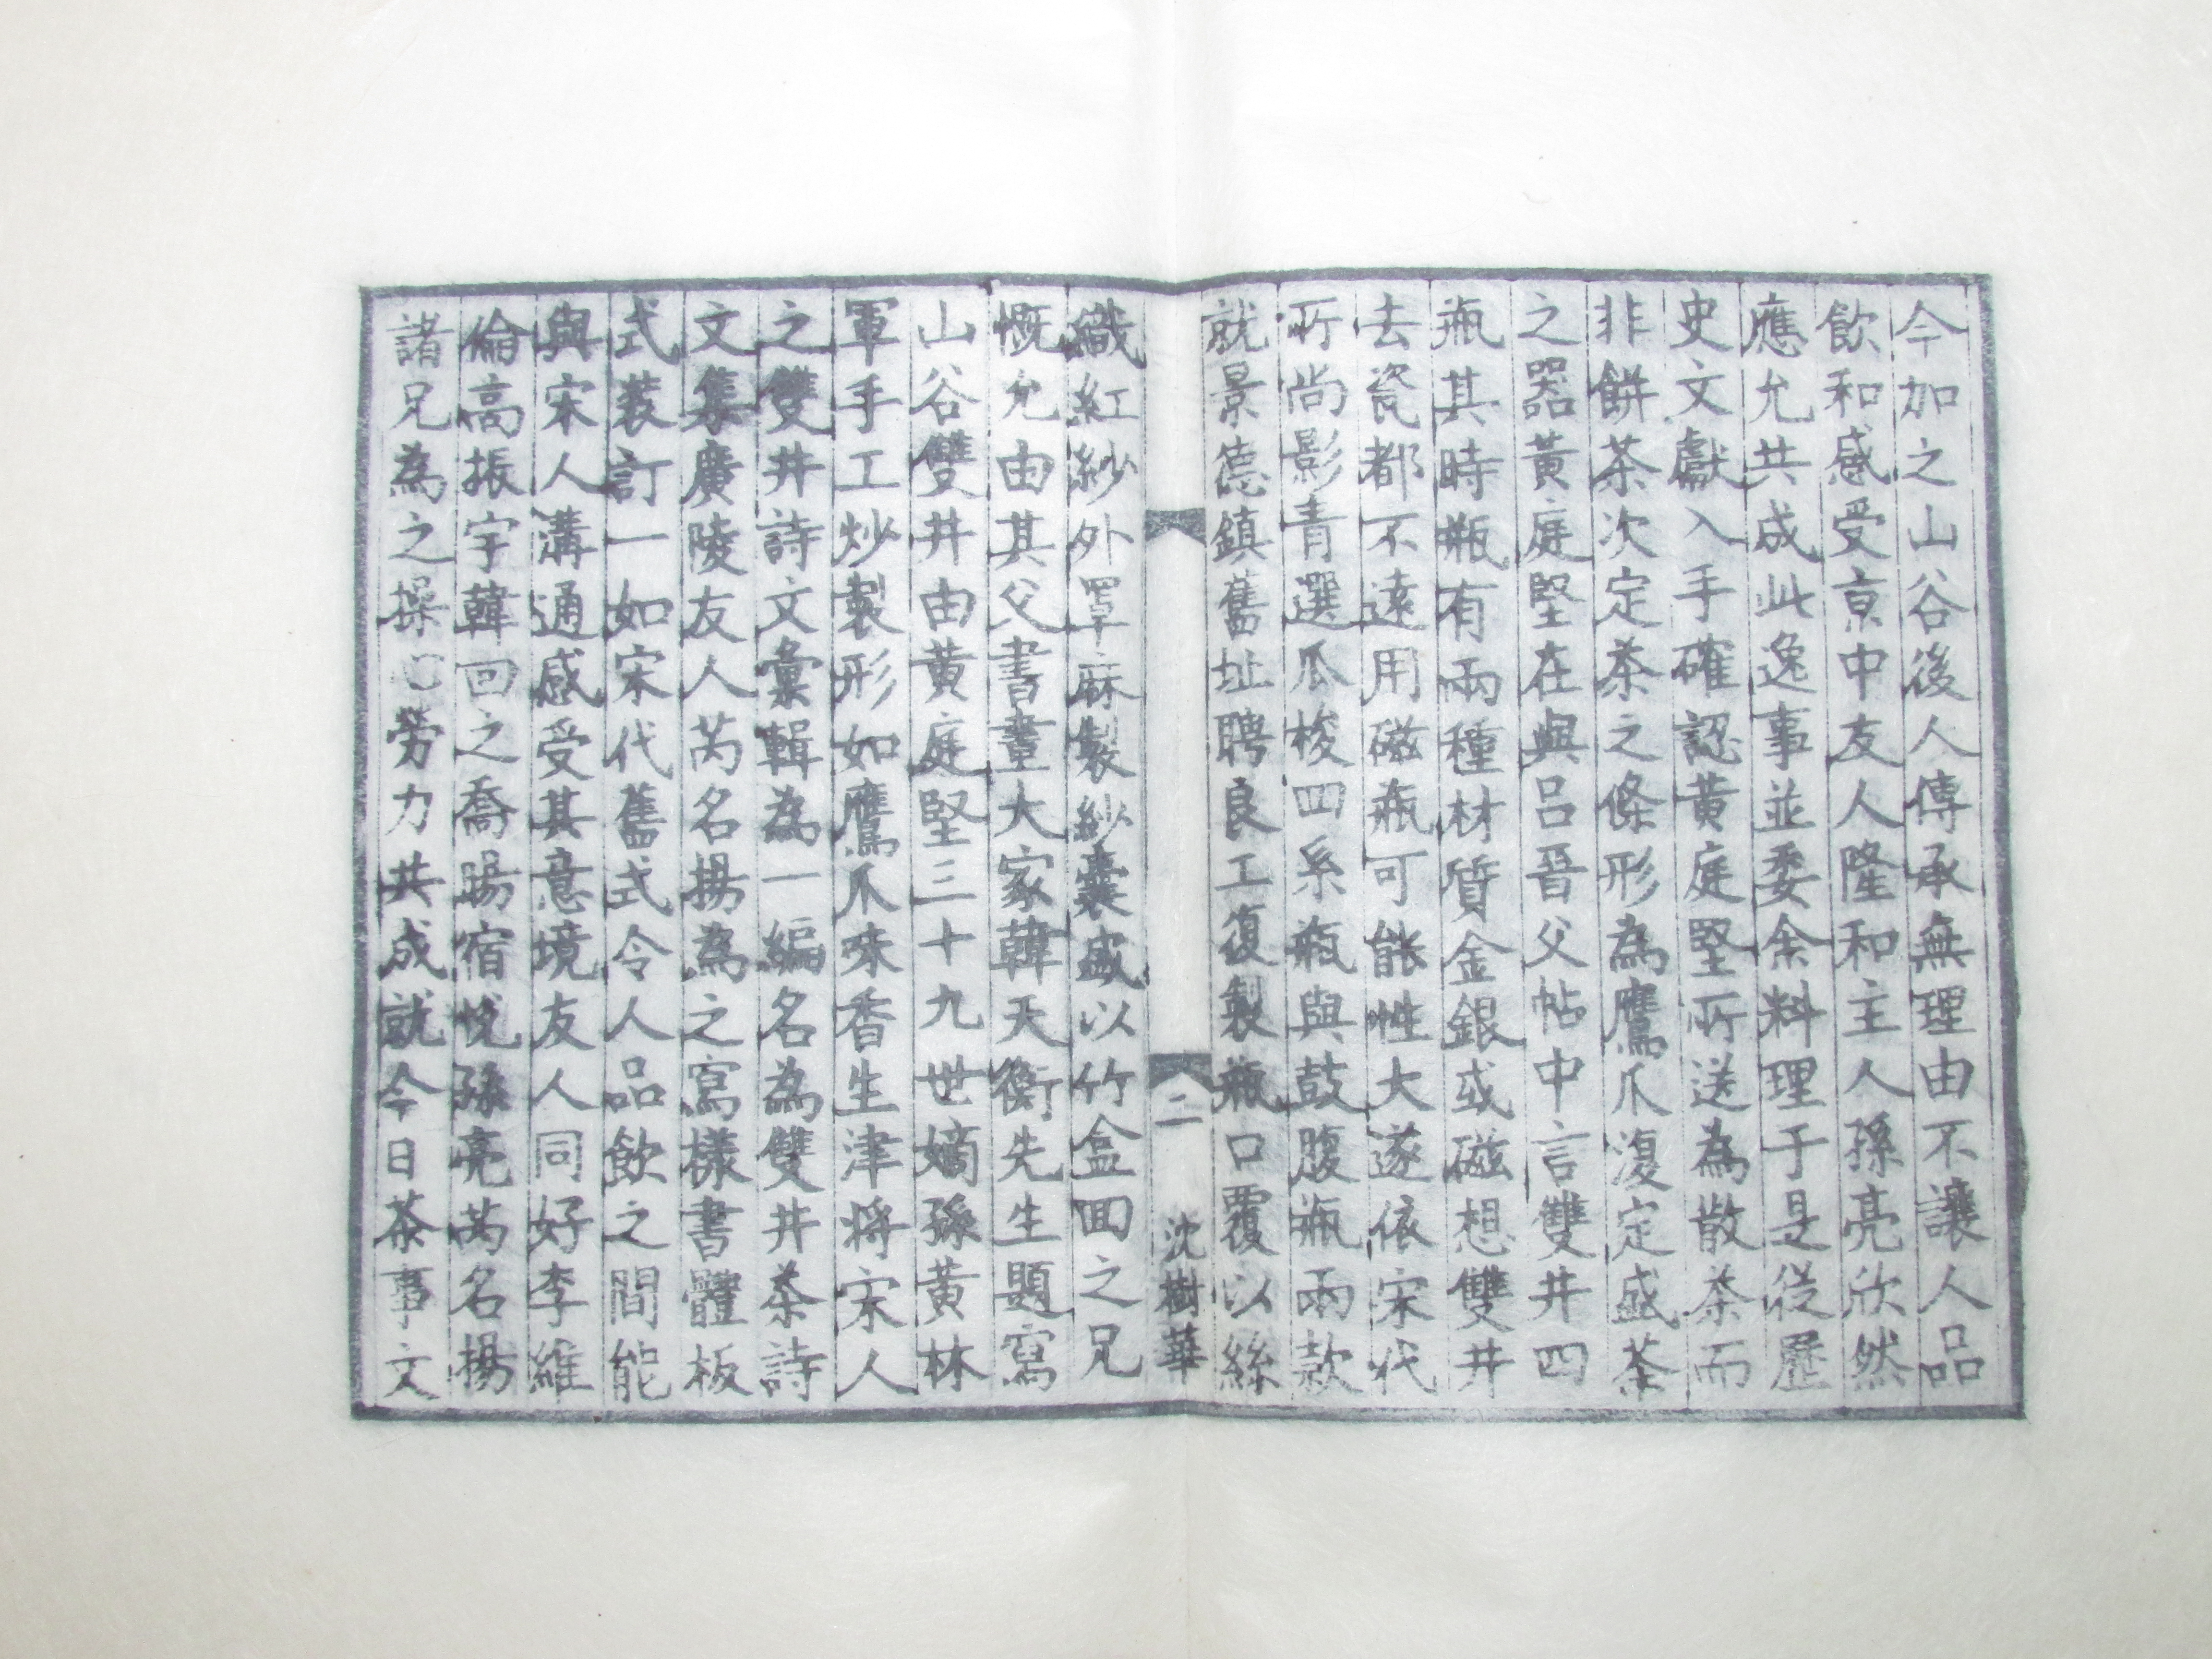 今加之山谷後人傳承無理由不讓人品
飲和感受京中友人隆和主人孫亮欣然
應允共成此逸事並委余料理于是從歷
史文獻入手確認黃庭堅所送為散茶而
非餅茶次定茶之條形為鷹爪復定盛茶
之器黃庭堅在與呂晉父帖中言雙井四
瓶其時瓶有兩種材質金銀或磁想雙井
去瓷都不遠用磁瓶可能性大遂依宋代
所尚影青選瓜棱四系瓶與鼓腹瓶兩款
就景德鎮舊址聘良工復製瓶口覆以絲
二
沈樹華
織紅紗外罩麻製紗囊盛以竹盒回之兄
慨允由其父書畫大家韓天衡先生題寫
山谷雙井由黃庭堅三十九世嫡孫黃林
軍手工炒製形如鷹爪味香生津將宋人
之雙井詩文彙輯為一編名為雙井茶詩
文集廣陵友人芮名揚為之寫樣書體板
式裝訂一如宋代舊式令人品飲之間能
與宋人溝通感受其意境友人同好李維
倫高振宇韓回之喬暘宿悅孫亮芮名揚
諸兄為之操心勞力共成就今日茶事文